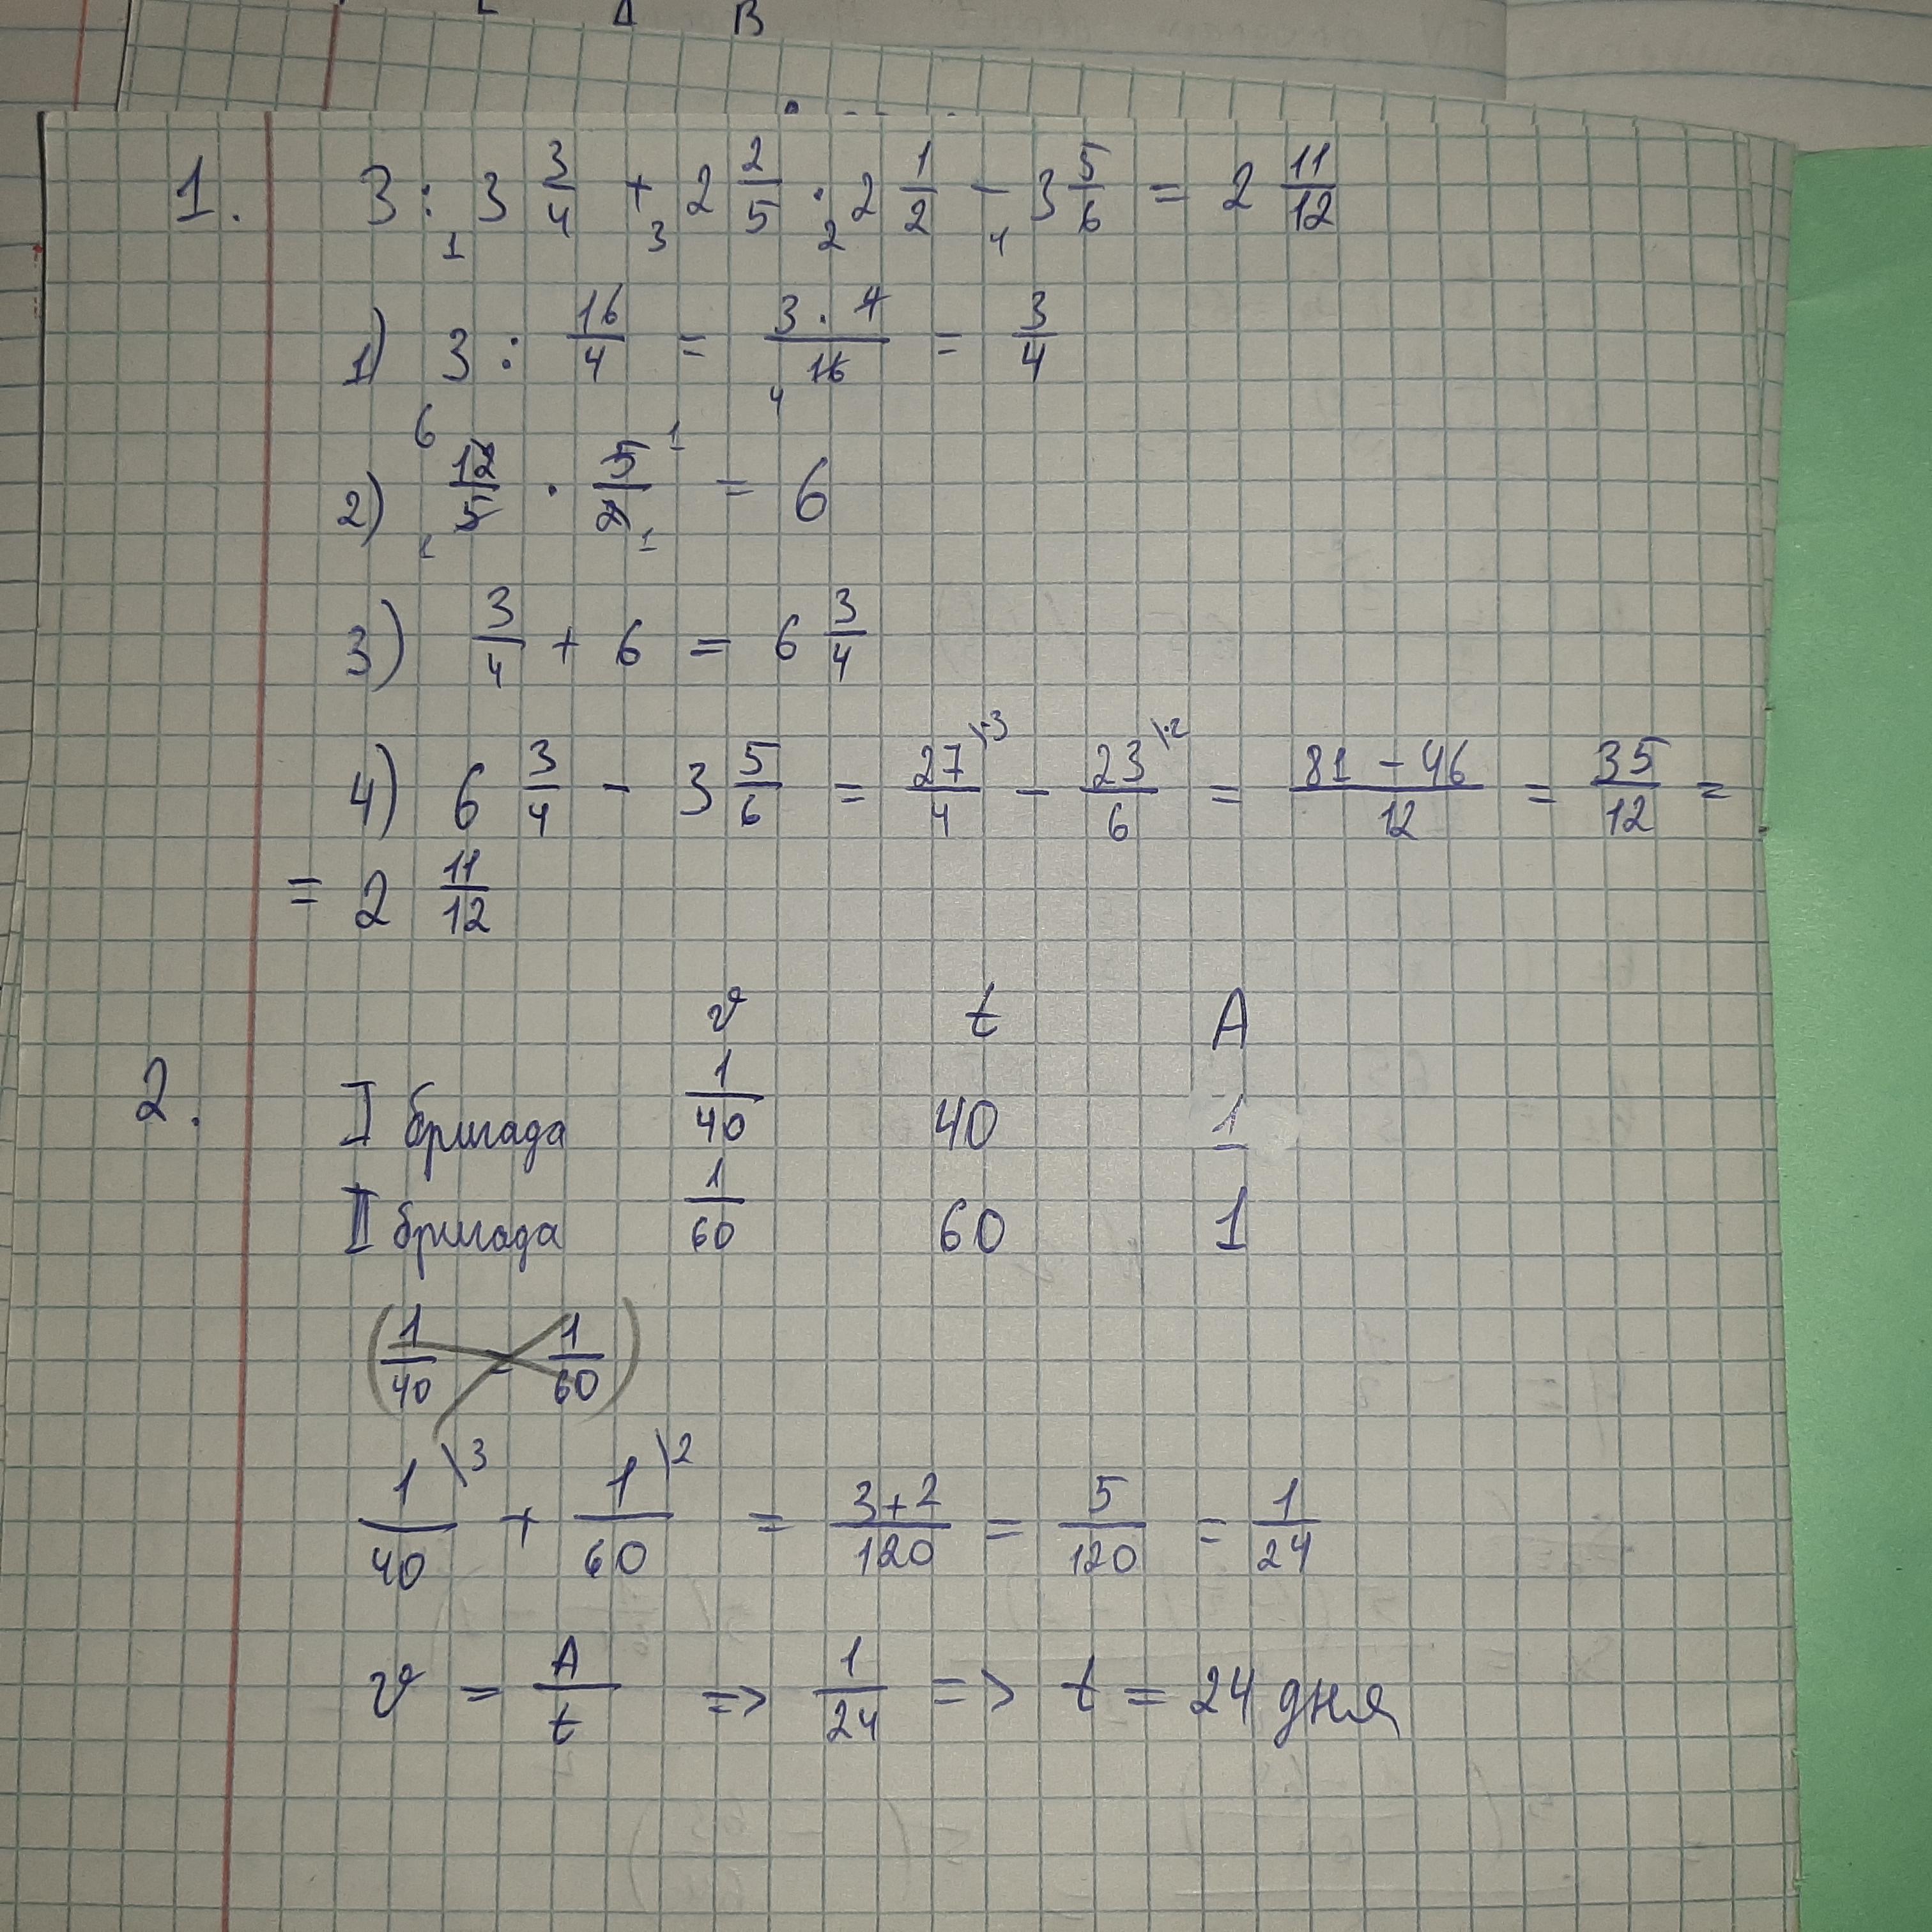 В
1. 3 : 3 3/4 + 2 2/5 · 2 1/2 - 3 5/6 = 2 11/12
1 3 2 4
1) 3 : 16/4 = 3 · 4/16 = 3/4
4
6 1
2) 12/5 · 5/2 = 6
1 1
3) 3/4 + 6 = 6 3/4
4) 6 3/4 - 3 5/6 = 27/4 \·3 - 23/6 \·2 = 81 - 46/12 = 35/12 =
= 2 11/12
v t A
2. I бригада 1/40 40 1
II бригада 1/60 60 1
(1/40 - 1/60)
1/40 \3 + 1/60 \2 = 3+2/120 = 5/120 = 1/24
v = A/t => 1/24 => t = 24 дня